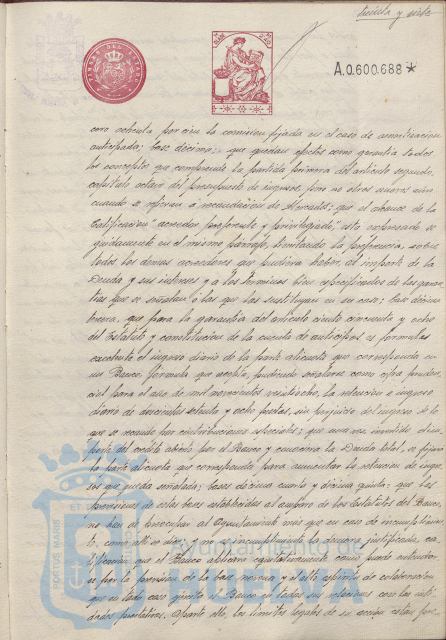 treinta y siete
A.0.600.688 *
cero ochenta por cien la comisión fijada en el caso de amortización
anticipada; base décima: que quedan afectos como garantía todos
los conceptos que comprende la partida primera del artículo segundo,
capítulo octavo del presupuesto de ingresos, pero no otros nuevos aún
cuando se refieran a recaudación de Mercado; que el alcance de la
calificación "acreedor preferente y privilegiado," está expresado se-
guidamente en el mismo párrafo, limitando la preferencia, sobre
todos los demás acreedores que pudiera haber, al importe de la
Deuda y sus intereses y a los términos bien especificados de las garan-
tías que se señalan o las que las sustituyan en su caso; base décimo
tercera, que para la garantía del artículo ciento cincuenta y ocho
del Estatuto y constitución de la cuenta de anticipos se formaliza
el ingreso diario de la parte alícuota que corresponda en
un Banco, fórmula que acepta, pudiendo señalarse como cifra pruden-
cial para el año de mil novecientos veintiocho, la retención e ingreso
diario de doscientas setenta y ocho pesetas, sin perjuicio del ingreso de lo
que se recaude por contribuciones especiales; que una vez invertido el im-
porte del crédito abierto por el Banco y conocida la Deuda total, se fijará
la parte alícuota que corresponda para aumentar la retención de ingre-
sos que queda señalada; bases décima cuarta y décima quinta: que las
previsiones de estas bases establecidas al amparo de los Estatutos del Banco,
no han de preocupar al Ayuntamiento más que en caso de incumplimien-
to, como allí se dice; y no es incumplimiento la demora justificada, ca-
lificación que el Banco aplicará equitativamente como puede entender-
se por la previsión de la base novena y el alto espíritu de colaboración
que en todo caso ejercita el Banco en todas sus relaciones con las enti-
dades prestatarias. Aparte ello, los límites legales de su acción están per-
PORTUS MAGNI
Ayuntamiento de